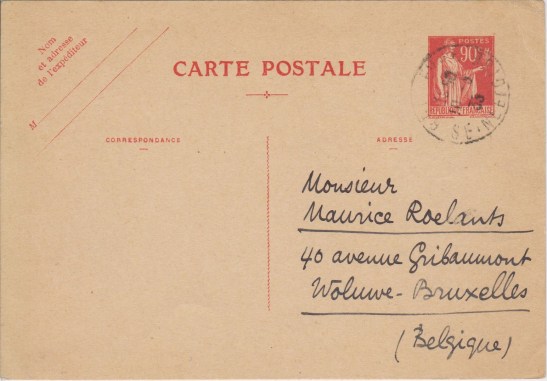 Nom
et adresse
de l'expéditeur
M
CARTE POSTALE
POSTES
90
REPUBLIQUE FRANÇAISE
SEINE
CORRESPONDANCE
ADRESSE
Monsieur
Maurice Roelants
40 avenue Gribaumont
Woluwe-Bruxelles
(Belgique)